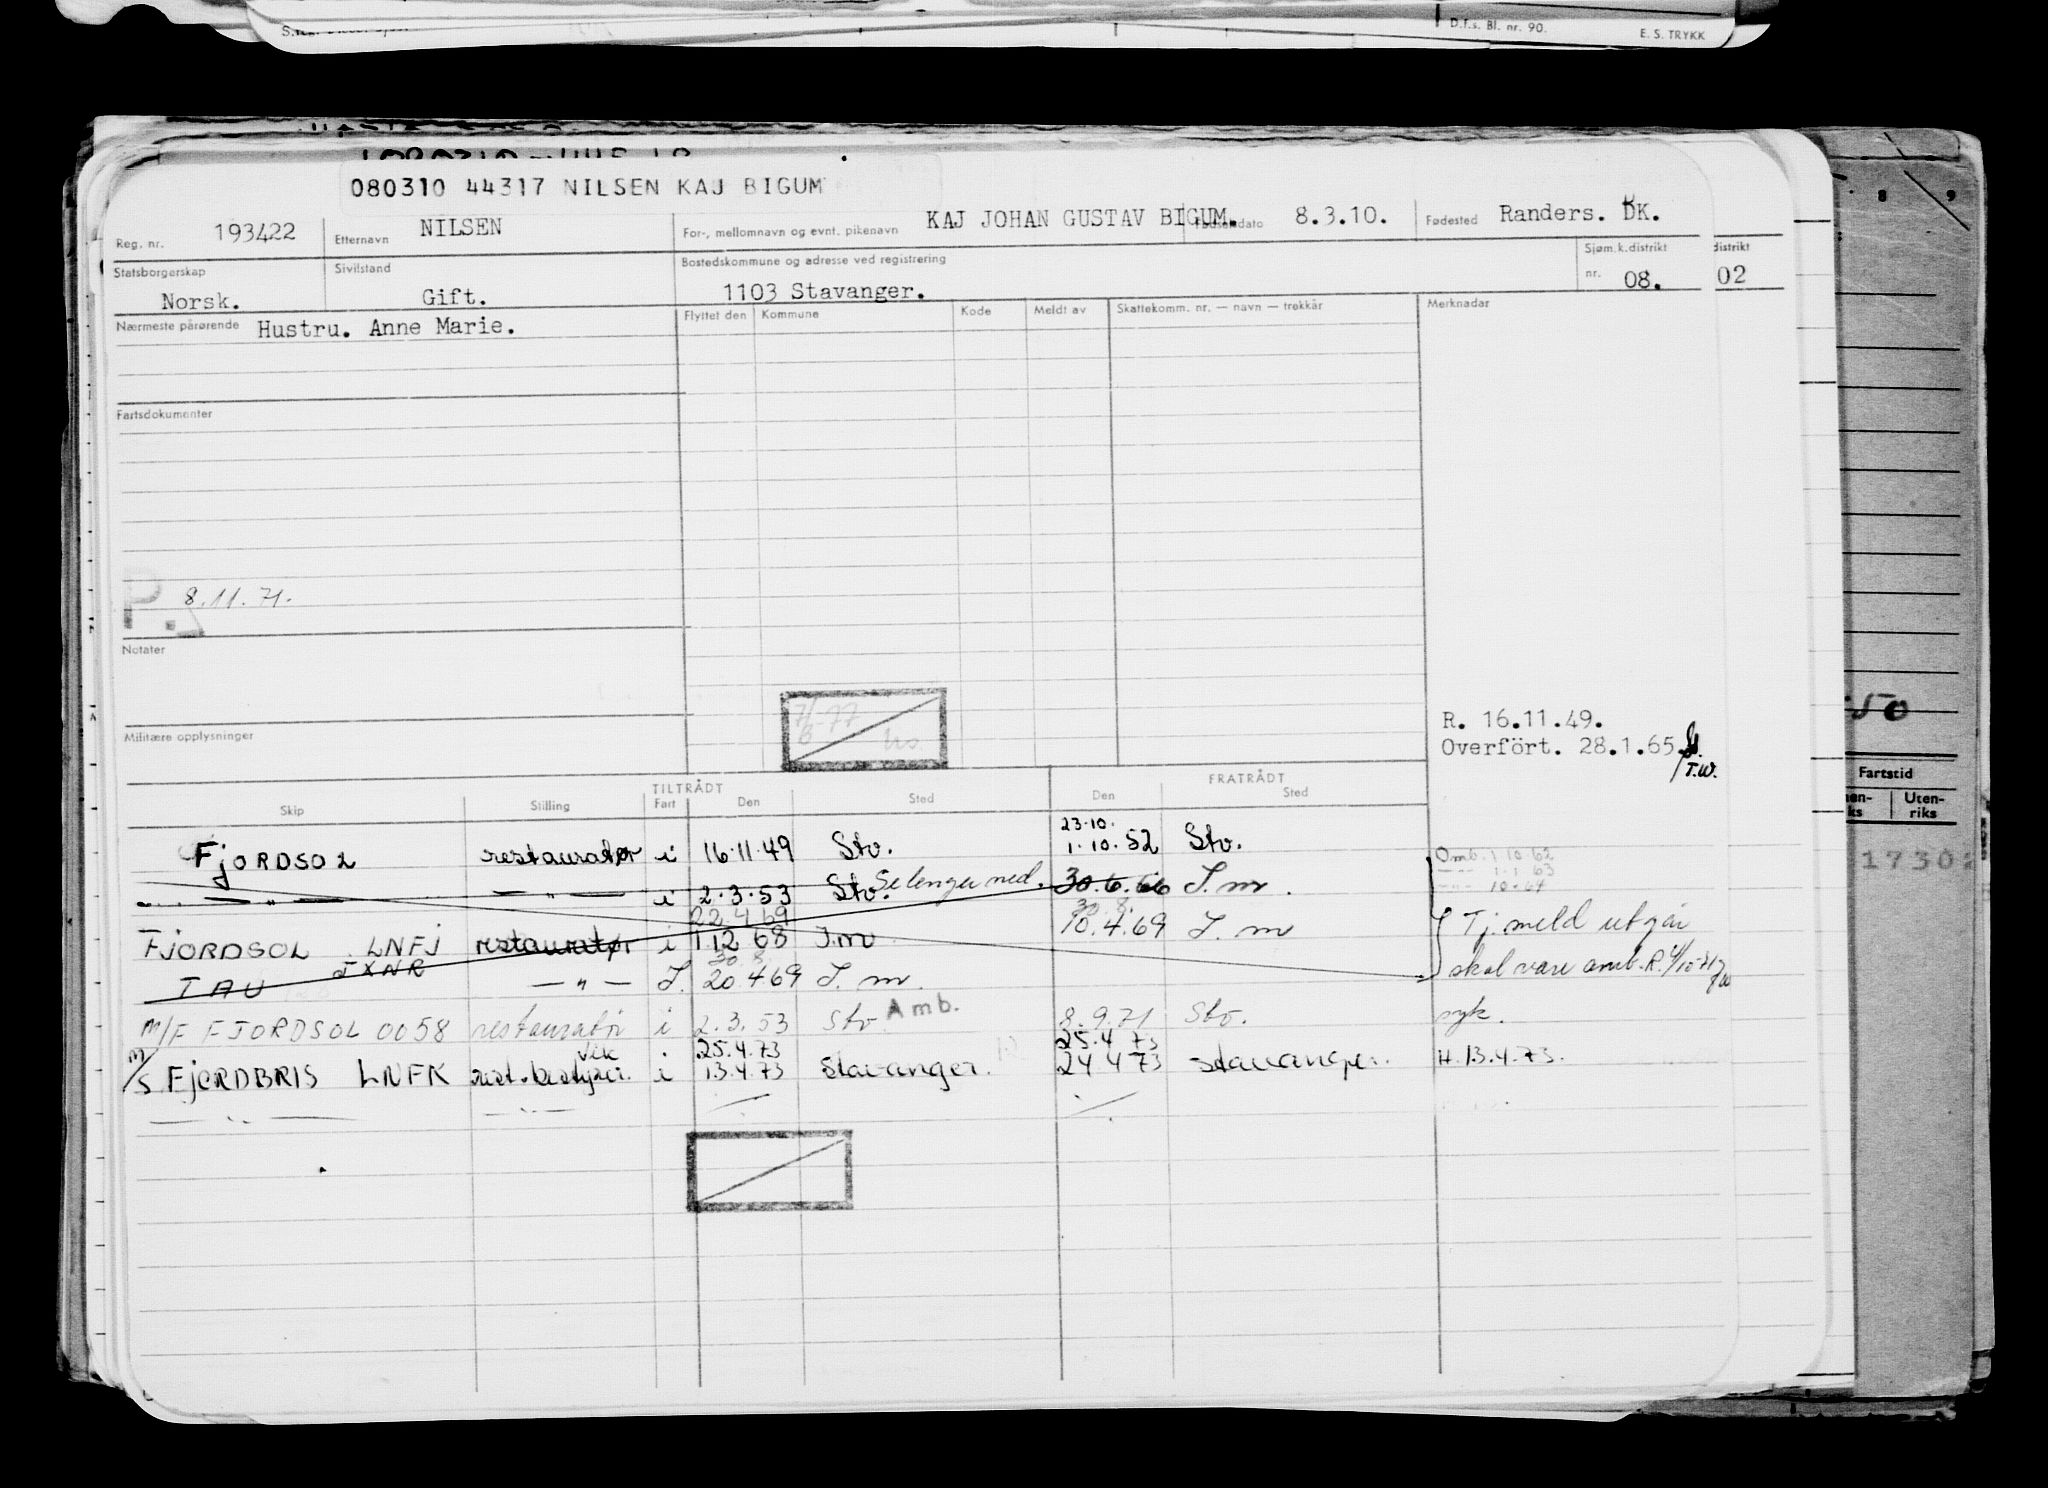 D.f.s. Bl. nr. 90. E. S. TRYKK
080310 44317 NILSEN KAJ BIGUM
Reg. nr. 193422 Etternavn NILSEN For-, mellomnavn og evnt. pikenavn KAJ JOHAN GUSTAV BIGUM. Fødselsdato 8.3.10. Fødested Randers. DK.
Statsborgerskap Norsk. Sivilstand Gift. Bostedskommune og adresse ved registrering 1103 Stavanger. Sjøm.k.distrikt nr. 08. distrikt 02
Nærmeste pårørende Hustru. Anne Marie. Flyttet den Kommune Kode Meldt av Skattekomm. nr. — navn — trekkår Merknader
Fartsdokumenter
P. 8.11.71.
Notater
R. 16.11.49.
Overfört. 28.1.65.
T.W.
Militære opplysninger
TILTRÅDT FRATRÅDT
Skip Stilling Fart Den Sted Den Sted
23.10.
Fjordsol restauratør i 16.11.49 Stv. 1.10.52 Stv.
Omb. 1.10.62
— " — 1.1.63
— " — 10.64
— " — — " — i 2.3.53 Stv. Se lenger ned. 30.6.66 S.m.
22.4.69 30.8.
FJORDSOL LNFJ restauratør i 1.12 68 S.m 10.4.69 S.m
Tj. meld utgår
skal være amb. R.
30 8.
TAU JXNR — " — S. 20.4.69 S.m.
M/F FJORDSOL 0058 restauratør i 2.3.53 Stv. Amb. 8.9.71 Stv. syk.
vik 25.4.73 25.4 73
M/S FJORDBRIS LNFK rest.bestyrer. i 13.4.73 Stavanger. 24 4 73 Stavanger. H. 13.4.73.
— " — — " —
8 9
50
Fartstid
Uten-
riks
1730